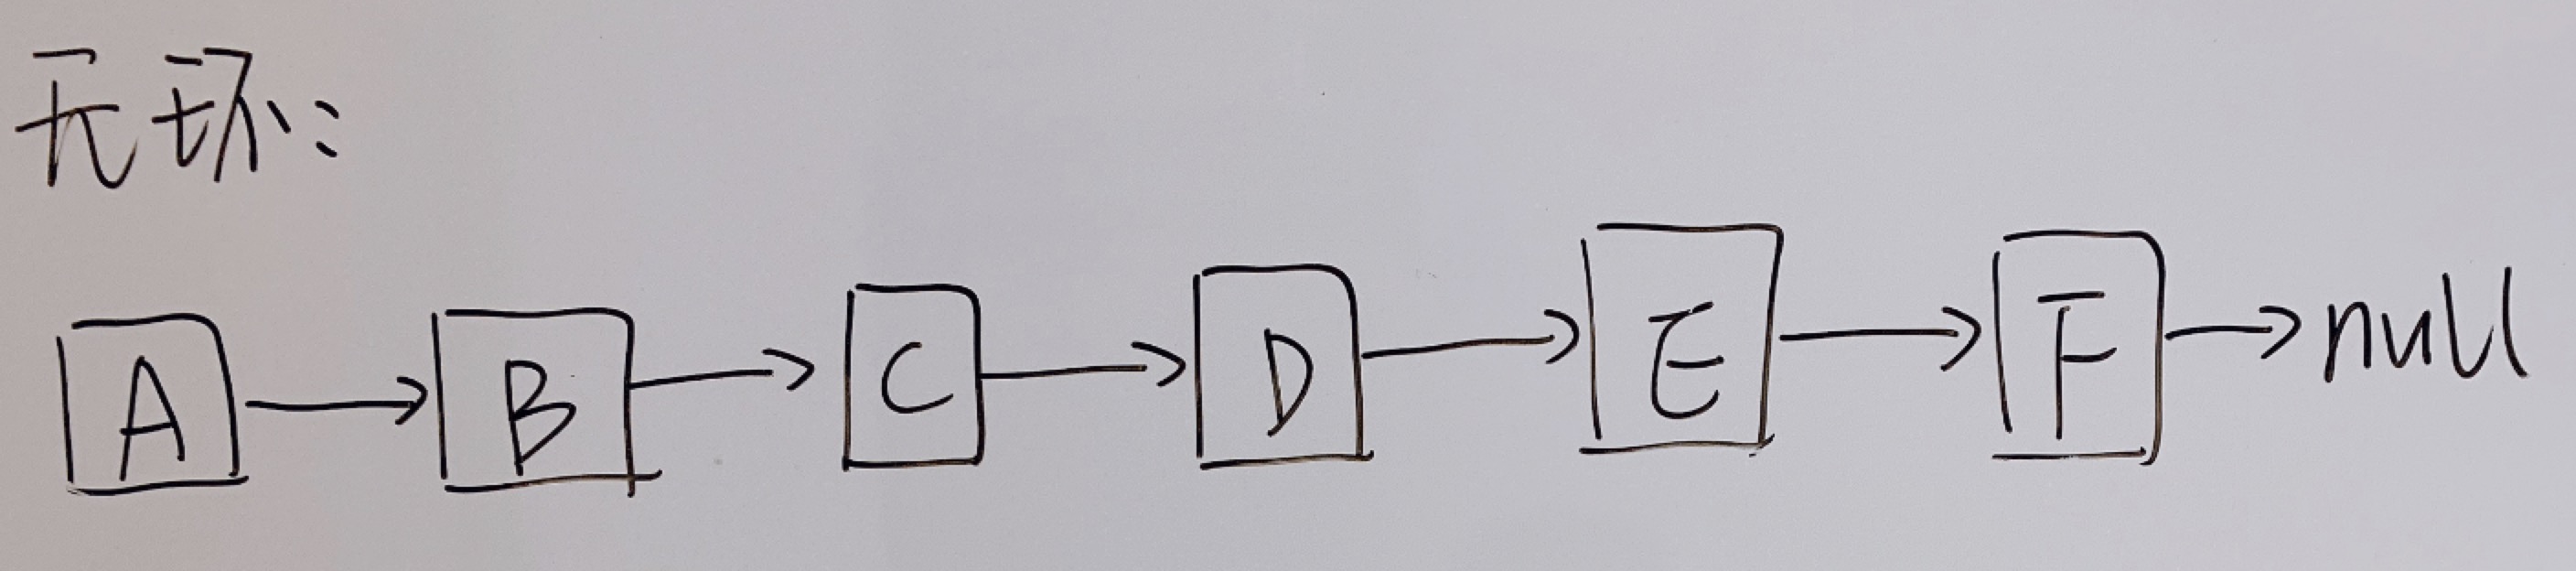 无环:
A → B → C → D → E → F → null